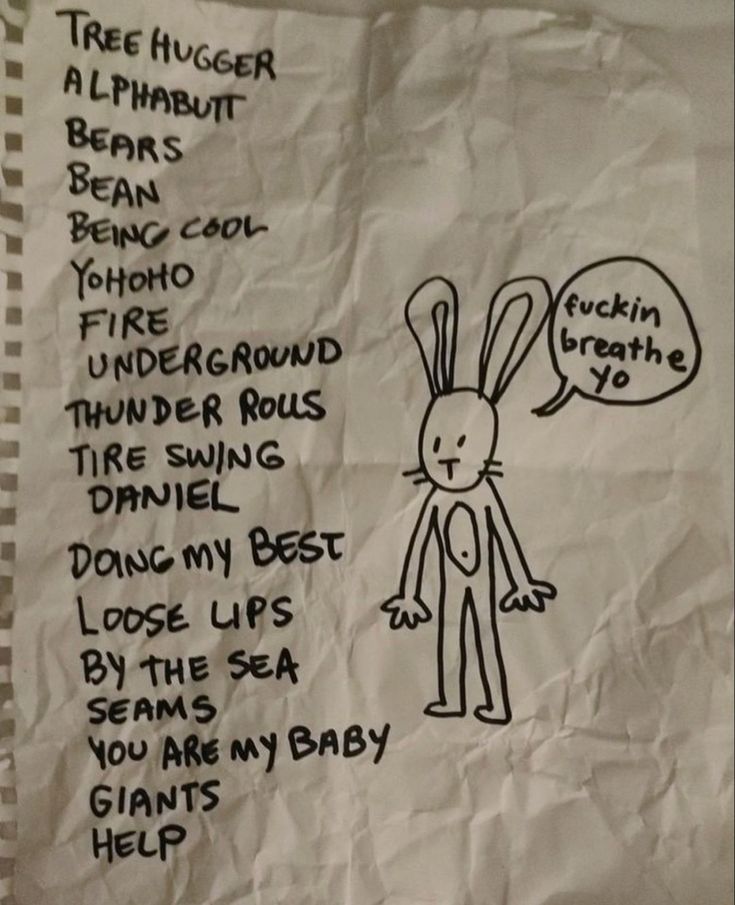 TREE HUGGER
ALPHABUTT
BEARS
BEAN
BEING COOL
YOHOHO
FIRE
UNDERGROUND
THUNDER ROLLS
TIRE SWING
DANIEL
DOING MY BEST
LOOSE LIPS
BY THE SEA
SEAMS
YOU ARE MY BABY
GIANTS
HELP
fuckin
breathe
yo